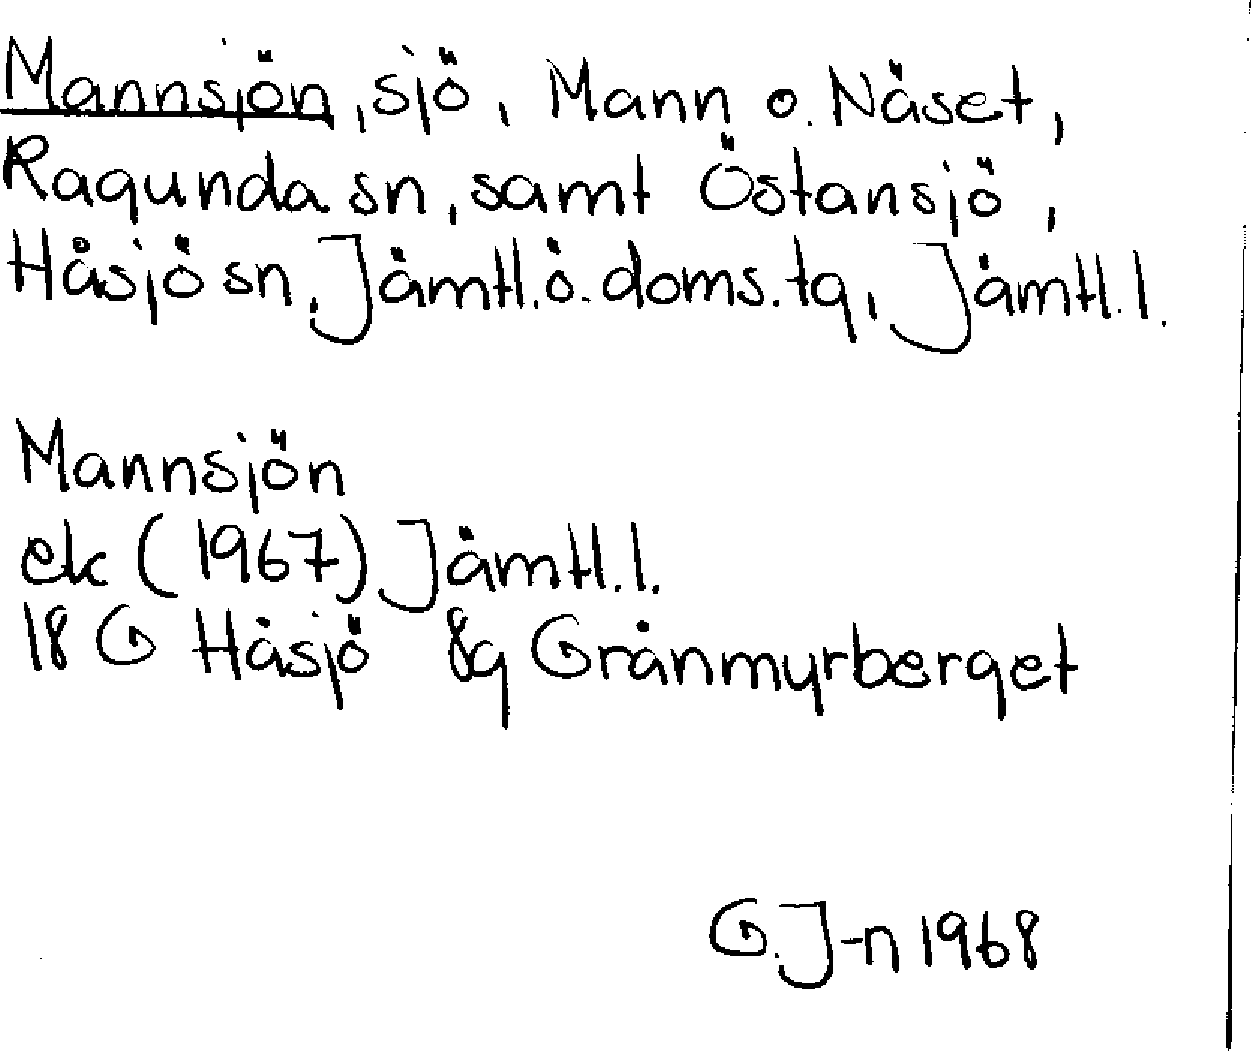 Mannsjön, sjö, Mann o. Näset,
Ragunda sn, samt Östansjö,
Håsjö sn, Jämtl.ö. doms. tg, Jämtl. l.
Mannsjön
ek (1967) Jämtl. l.
18 G Håsjö 8g Grånmyrberget
G. J-n 1968